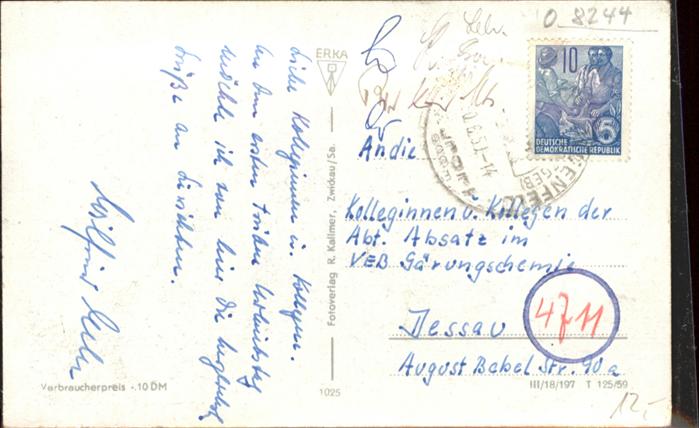 O 8244
Liebe Kolleginnen u. Kollegen.
An dem ersten trüben Urlaubstag
möchte ich von hier die
Grüße an Sie richten.
Wilfried
Verbraucherpreis -.10 DM
ERKA
Fotoverlag R. Kallmer, Zwickau/Sa.
1025
10
5
DEUTSCHE
DEMOKRATISCHE REPUBLIK
An die
Kolleginnen u. Kollegen der
Abt. Absatz im
VEB Gärungschemie
Dessau
August Bebel Str. 90a
4711
III/18/197 T 125/59
12,-